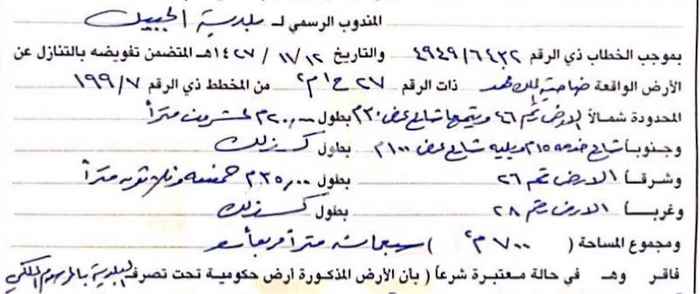 المندوب الرسمي لـ بلدية الجبيل
بموجب الخطاب ذي الرقم ٤٩٤٩/٦٤٣٢ والتاريخ ١١/١٢/١٤٢٧هـ المتضمن تفويضه بالتنازل عن
الأرض الواقعة ضاحية الملك فهد ذات الرقم ٢٧ من المخطط ذي الرقم ١٩٩/٧
المحدودة شمالاً الارض رقم ٤٦ شارع عرض ٣٠م بطول ٢٠,٠٠م عشرون متراً
وجنوباً شارع خدمه ١٥م يليه شارع عرض ١٠٠م بطول كذلك
وشرقاً الارض رقم ٢٦ بطول ٣٥,٠٠م خمسه وثلاثون متراً
وغرباً الارض رقم ٢٨ بطول كذلك
ومجموع المساحة ( ٧٠٠م٢ ) سبعمائة متراً مربعاً
فأقر وهـ في حالة معتبرة شرعاً ( بأن الأرض المذكورة أرض حكومية تحت تصرف البلدية بالمرسوم الملكي